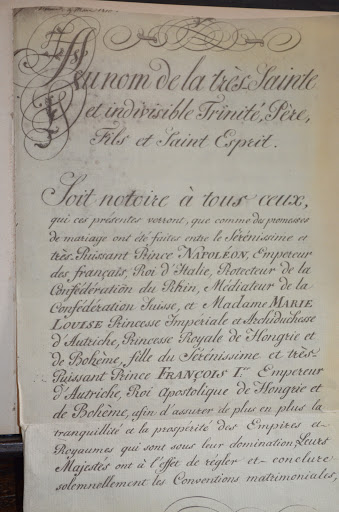 Au nom de la très Sainte
et indivisible Trinité, Père,
Fils et Saint Esprit.
Soit notoire à tous ceux,
qui ces présentes verront, que comme des promesses
de mariage ont été faites entre le Sérénissime et
très Puissant Prince NAPOLÉON, Empereur
des français, Roi d'Italie, Protecteur de la
Confédération du Rhin, Médiateur de la
Confédération Suisse, et Madame MARIE
LOUISE Princesse Impériale et Archiduchesse
d'Autriche, Princesse Royale de Hongrie et
de Bohème, fille du Sérénissime et très
Puissant Prince FRANÇOIS I.er Empereur
d'Autriche, Roi Apostolique de Hongrie et
de Bohème, afin d'assurer de plus en plus la
tranquillité et la prospérité des Empires et
Royaumes qui sont sous leur domination Leurs
Majestés ont à l'effet de régler et conclure
solemnellement les Conventions matrimoniales,